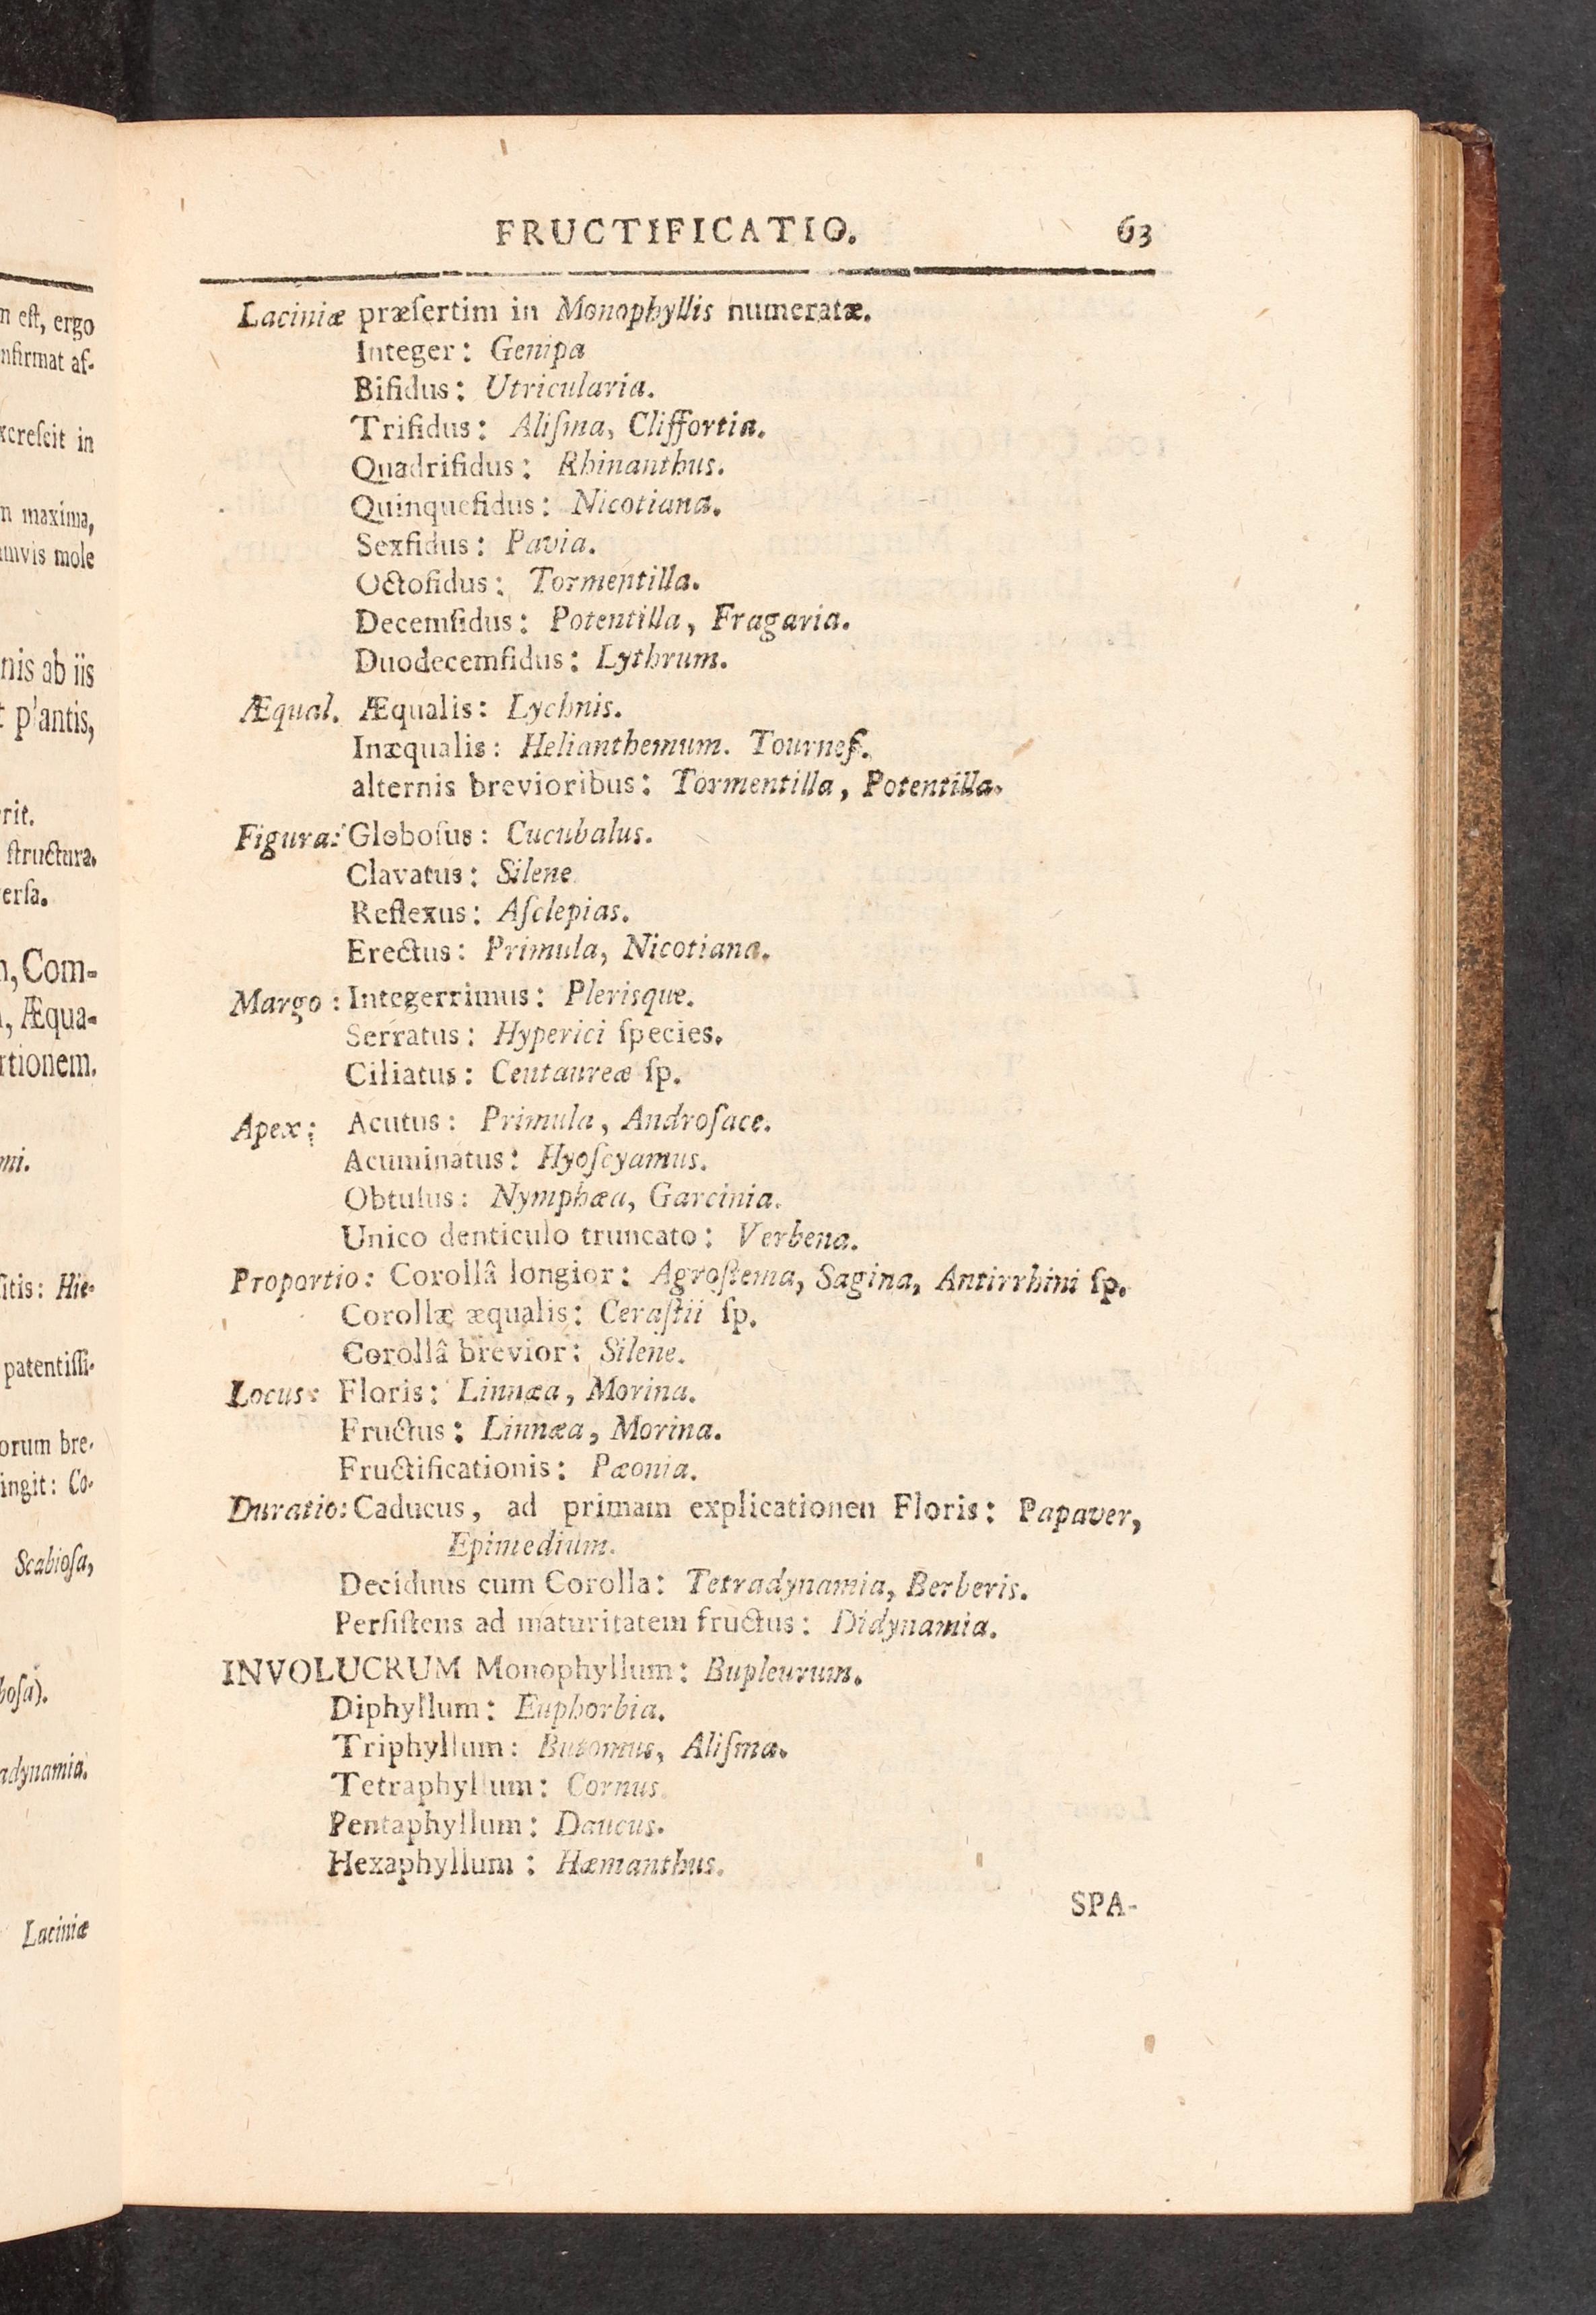 n eſt, ergo
nfirmat aſ-
xcreſcit in
n maxima,
amvis mole
nis ab iis
t plantis,
rit.
ſtructura.
erſa.
n, Com-
, Æqua-
rtionem.
mi.
ſitis: Hie-
patentiſſi-
orum bre-
ingit: Co-
Scabioſa,
boſa).
adynamia.
Laciniæ
FRUCTIFICATIO. 63
Laciniæ præſertim in Monophyllis numeratæ.
Integer: Genipa
Bifidus: Utricularia.
Trifidus: Aliſma, Cliffortia.
Quadrifidus: Rhinanthus.
Quinquefidus: Nicotiana.
Sexfidus: Pavia.
Octofidus: Tormentilla.
Decemfidus: Potentilla, Fragaria.
Duodecemfidus: Lythrum.
Æqual. Æqualis: Lychnis.
Inæqualis: Helianthemum. Tournef.
alternis brevioribus: Tormentilla, Potentilla.
Figura: Globoſus: Cucubalus.
Clavatus: Silene
Reflexus: Aſclepias.
Erectus: Primula, Nicotiana.
Margo: Integerrimus: Plerisque.
Serratus: Hyperici ſpecies.
Ciliatus: Centaureæ ſp.
Apex: Acutus: Primula, Androſace.
Acuminatus: Hyoſcyamus.
Obtuſus: Nymphæa, Garcinia.
Unico denticulo truncato: Verbena.
Proportio: Corollâ longior: Agroſtema, Sagina, Antirrhini ſp.
Corollæ æqualis: Ceraſtii ſp.
Corollâ brevior: Silene.
Locus: Floris: Linnæa, Morina.
Fructus: Linnæa, Morina.
Fructificationis: Pæonia.
Duratio: Caducus, ad primam explicationen Floris: Papaver,
Epimedium.
Deciduus cum Corolla: Tetradynamia, Berberis.
Perſiſtens ad maturitatem fructus: Didynamia.
INVOLUCRUM Monophyllum: Bupleurum.
Diphyllum: Euphorbia.
Triphyllum: Butomus, Aliſma.
Tetraphyllum: Cornus.
Pentaphyllum: Daucus.
Hexaphyllum: Hæmanthus.
SPA-